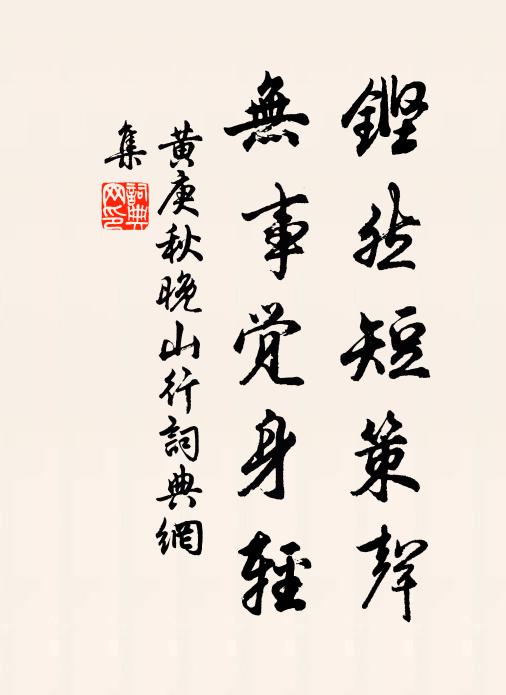 鏗然短策聲
無事覺身輕
黃庚秋晚山行詞典網
集
詞典
網印